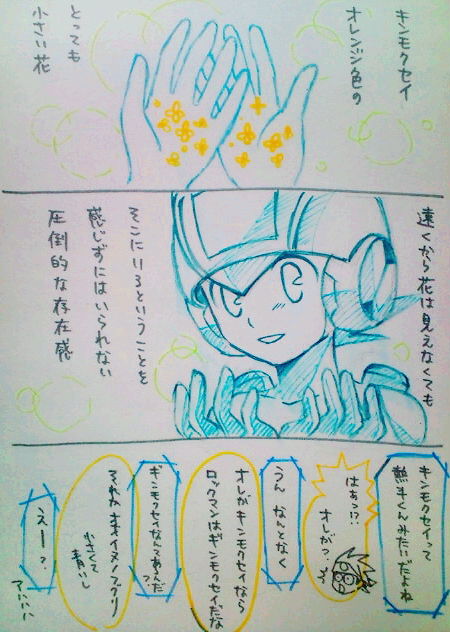 キンモクセイ
オレンジ色の
とっても
小さい花
遠くから花は見えなくても
そこにいるということを
感じずにはいられない
圧倒的な存在感
キンモクセイって
熱斗くんみたいだよね
はあっ!?
オレがっ!?
うん なんとなく
オレがキンモクセイなら
ロックマンはギンモクセイだな
ギンモクセイなんてあんだ?
それかオオイヌノフグリ
小さくて
青いし
えー?
アハハハ